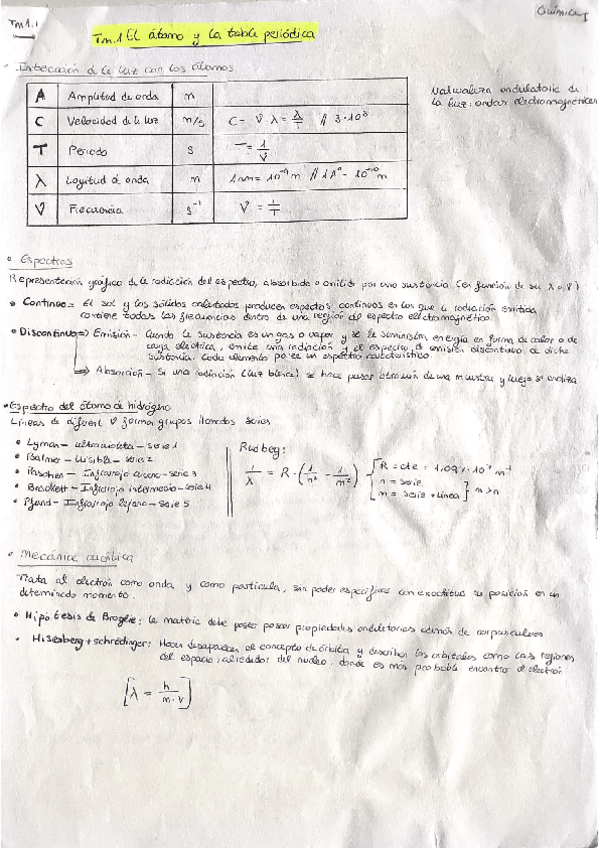 Tm1.1
Química
Tm.1 El átomo y la tabla periódica
Interacción de la luz con los átomos
A Amplitud de onda m
C Velocidad de la luz m/s C = ν·λ = λ/T // 3·10⁸
T Periodo s T = 1/ν
λ Logitud de onda m
ν Frecuencia s⁻¹ ν = 1/T
Naturaleza ondulatoria de
la luz: ondas electromagnéticas
• Espectros
Representación gráfica de la radiación del espectro, absorbida o emitida por una sustancia (en función de su λ o ν)
• Continuo = El sol y los sólidos calentados producen espectros continuos en los que la radiación emitida
contiene todas las frecuencias dentro de una región del espectro electromagnético
• Discontinuo => Emisión - Cuando la sustancia es un gas o vapor y se le suministra energía en forma de calor o de
carga eléctrica, emite una radiación y el espectro de emisión discontinuo de dicha
sustancia. Cada elemento posee un espectro característico.
Absorción - Si una radiación (luz blanca) se hace pasar a través de una muestra y luego se analiza
• Espectro del átomo de hidrógeno
Líneas de diferent ν forma grupos llamados series
• Lyman - ultravioleta - serie 1
• Balmer - Visible - serie 2
• Paschen - Infrarrojo cercano - serie 3
• Brackett - Infrarrojo intermedio - serie 4
• Pfund - Infrarrojo lejano - Saie 5
Rudbeg:
1/λ = R · (1/n² - 1/m²)
R = cte = 1.097 · 10⁷ m⁻¹
n = serie
m = serie + línea
m > n
• Mecánica cuántica
Trata al electrón como onda y como partícula, sin poder especificar con exactitud su posición en un
determinado momento.
• Hipótesis de Broglie: la materia debe poseer propiedades ondulatorias además de corpusculares
• Hisesberg + schrödinger: Hacen desaparecer el concepto de órbita y describen los orbitales como las regiones
del espacio, alrededor del nucleo, donde es más probable encontrar el electrón
[λ = h/m·v]